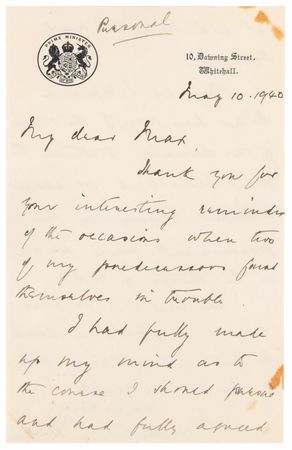 Personal
PRIME MINISTER
10, Downing Street,
Whitehall.
May 10. 1940
My dear Max,
Thank you for
your interesting reminder
of the occasions when two
of my predecessors found
themselves in trouble.
I had fully made
up my mind as to
the course I should pursue
and had fully agreed